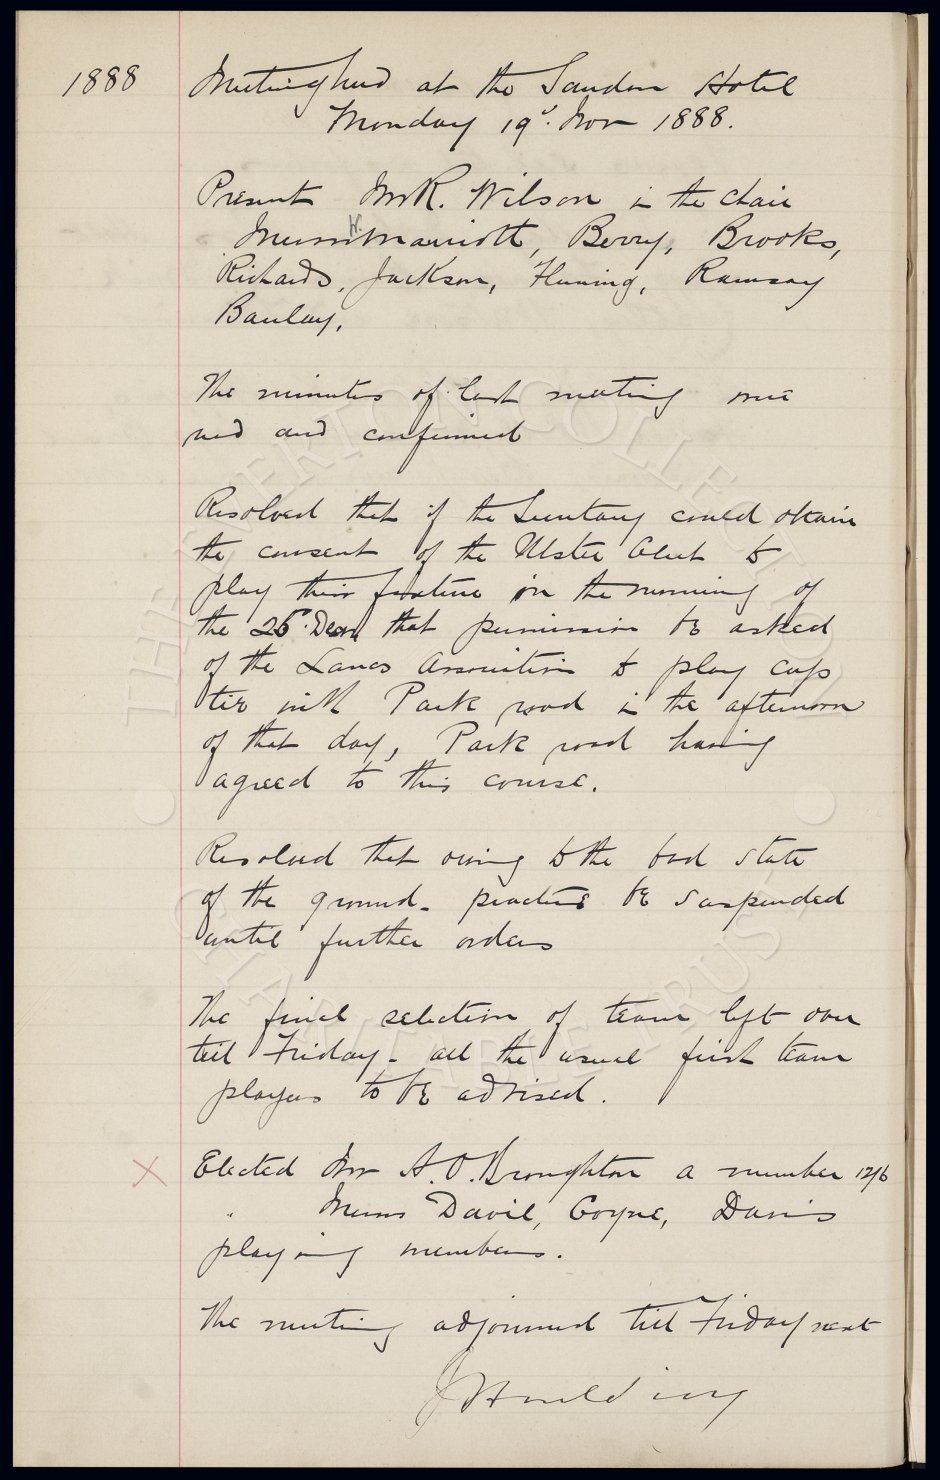 1888
Meeting held at the Sandon Hotel
Monday 19th. Nov 1888.
Present Mr R. Wilson in the chair
Messrs W. Marriott, Berry, Brooks,
Richards, Jackson, Fleming, Ramsay
Barclay.
The minutes of last meeting were
read and confirmed
Resolved that if the Secretary could obtain
the consent of the Ulster Club to
play their fixture on the morning of
the 26th. Decr that permission be asked
of the Lancs Association to play cup
tie with Park road in the afternoon
of that day, Park road having
agreed to this course.
Resolved that owing to the bad state
of the ground - practice be suspended
until further orders
The final selection of team left over
till Friday - all the usual first team
players to be advised.
X Elected Mr A. O. Broughton a member 12/6
" Messrs David, Coyne, Davis
playing members.
The meeting adjourned till Friday next
J Houlding
THE EVERTON COLLECTION
CHARITABLE TRUST